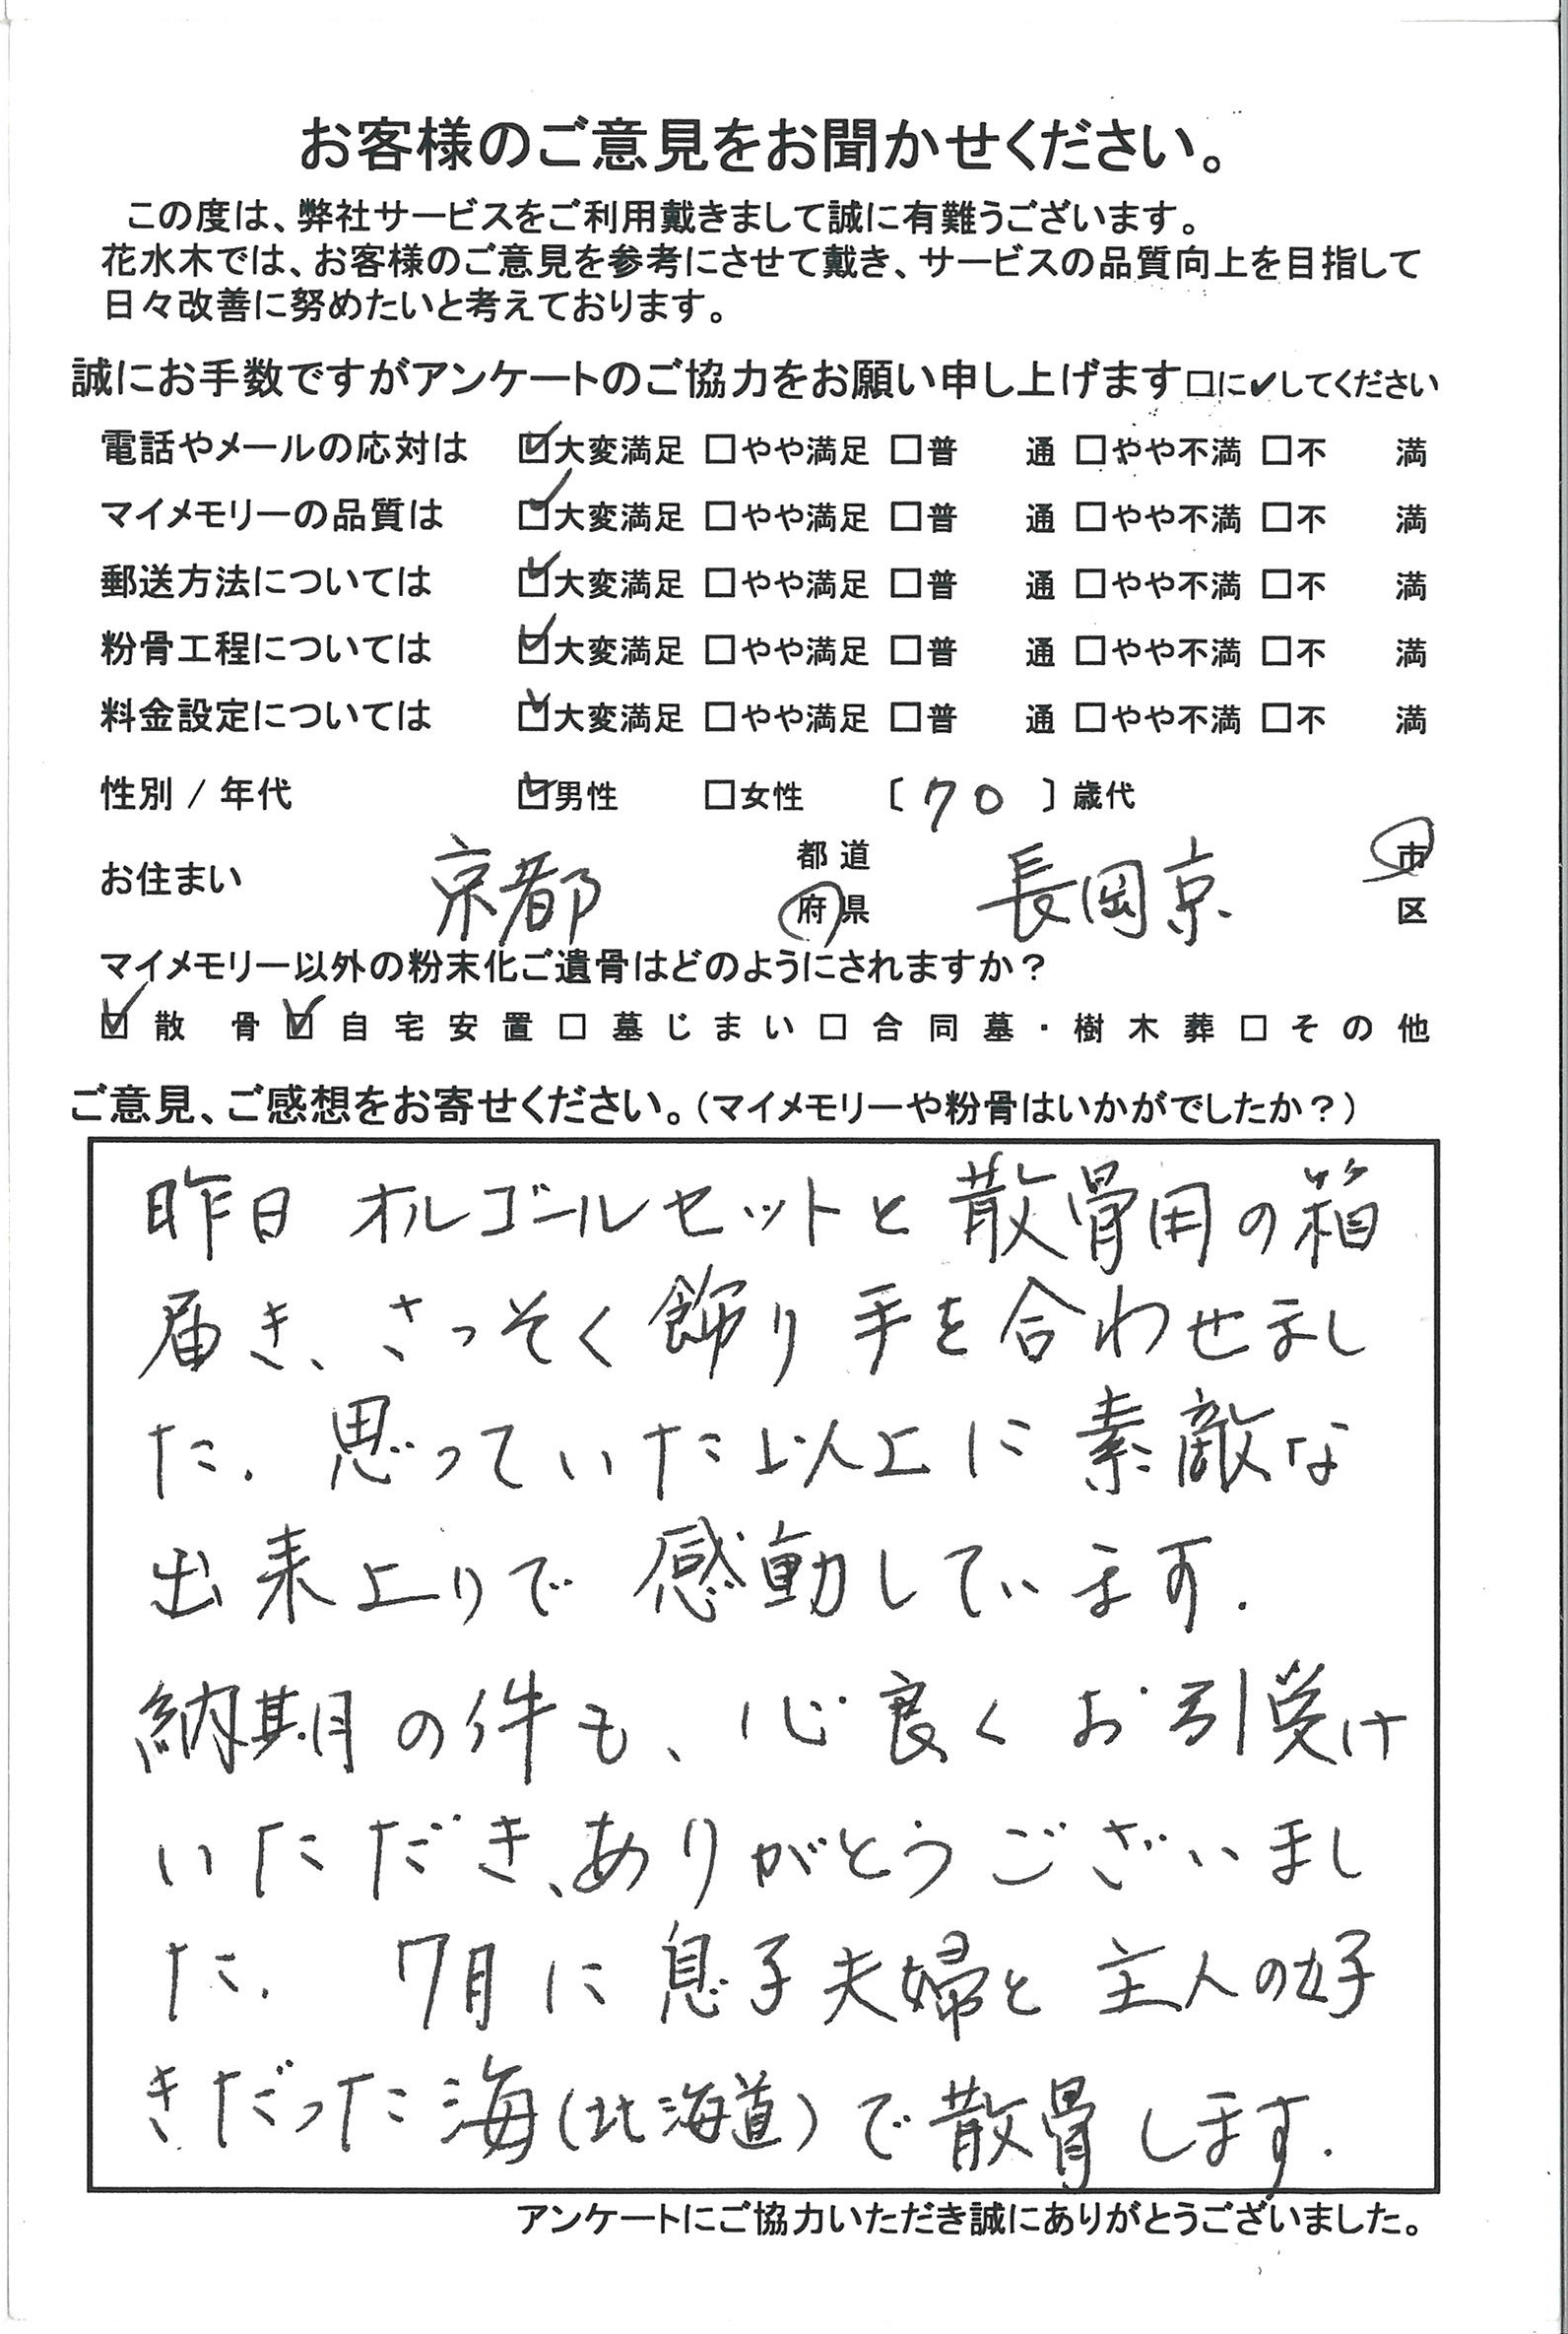 お客様のご意見をお聞かせください。
この度は、弊社サービスをご利用戴きまして誠に有難うございます。
花水木では、お客様のご意見を参考にさせて戴き、サービスの品質向上を目指して
日々改善に努めたいと考えております。
誠にお手数ですがアンケートのご協力をお願い申し上げます□に✔してください
電話やメールの応対は ☑大変満足 □やや満足 □普 通 □やや不満 □不 満
マイメモリーの品質は ☑大変満足 □やや満足 □普 通 □やや不満 □不 満
郵送方法については ☑大変満足 □やや満足 □普 通 □やや不満 □不 満
粉骨工程については ☑大変満足 □やや満足 □普 通 □やや不満 □不 満
料金設定については ☑大変満足 □やや満足 □普 通 □やや不満 □不 満
性別 / 年代 ☑男性 □女性 〔 70 〕歳代
お住まい 京都 都道府県 長岡京 市区
マイメモリー以外の粉末化ご遺骨はどのようにされますか?
☑散 骨 ☑自宅安置 □墓じまい □合同墓・樹木葬 □その他
ご意見、ご感想をお寄せください。(マイメモリーや粉骨はいかがでしたか?)
昨日 オルゴールセットと散骨用の箱
届き、さっそく飾り手を合わせまし
た. 思っていた以上に素敵な
出来上りで 感動しています.
納期の件も、心良くお引受け
いただき、ありがとうございまし
た. 7月に息子夫婦と主人の好
きだった海(北海道)で散骨します.
アンケートにご協力いただき誠にありがとうございました。